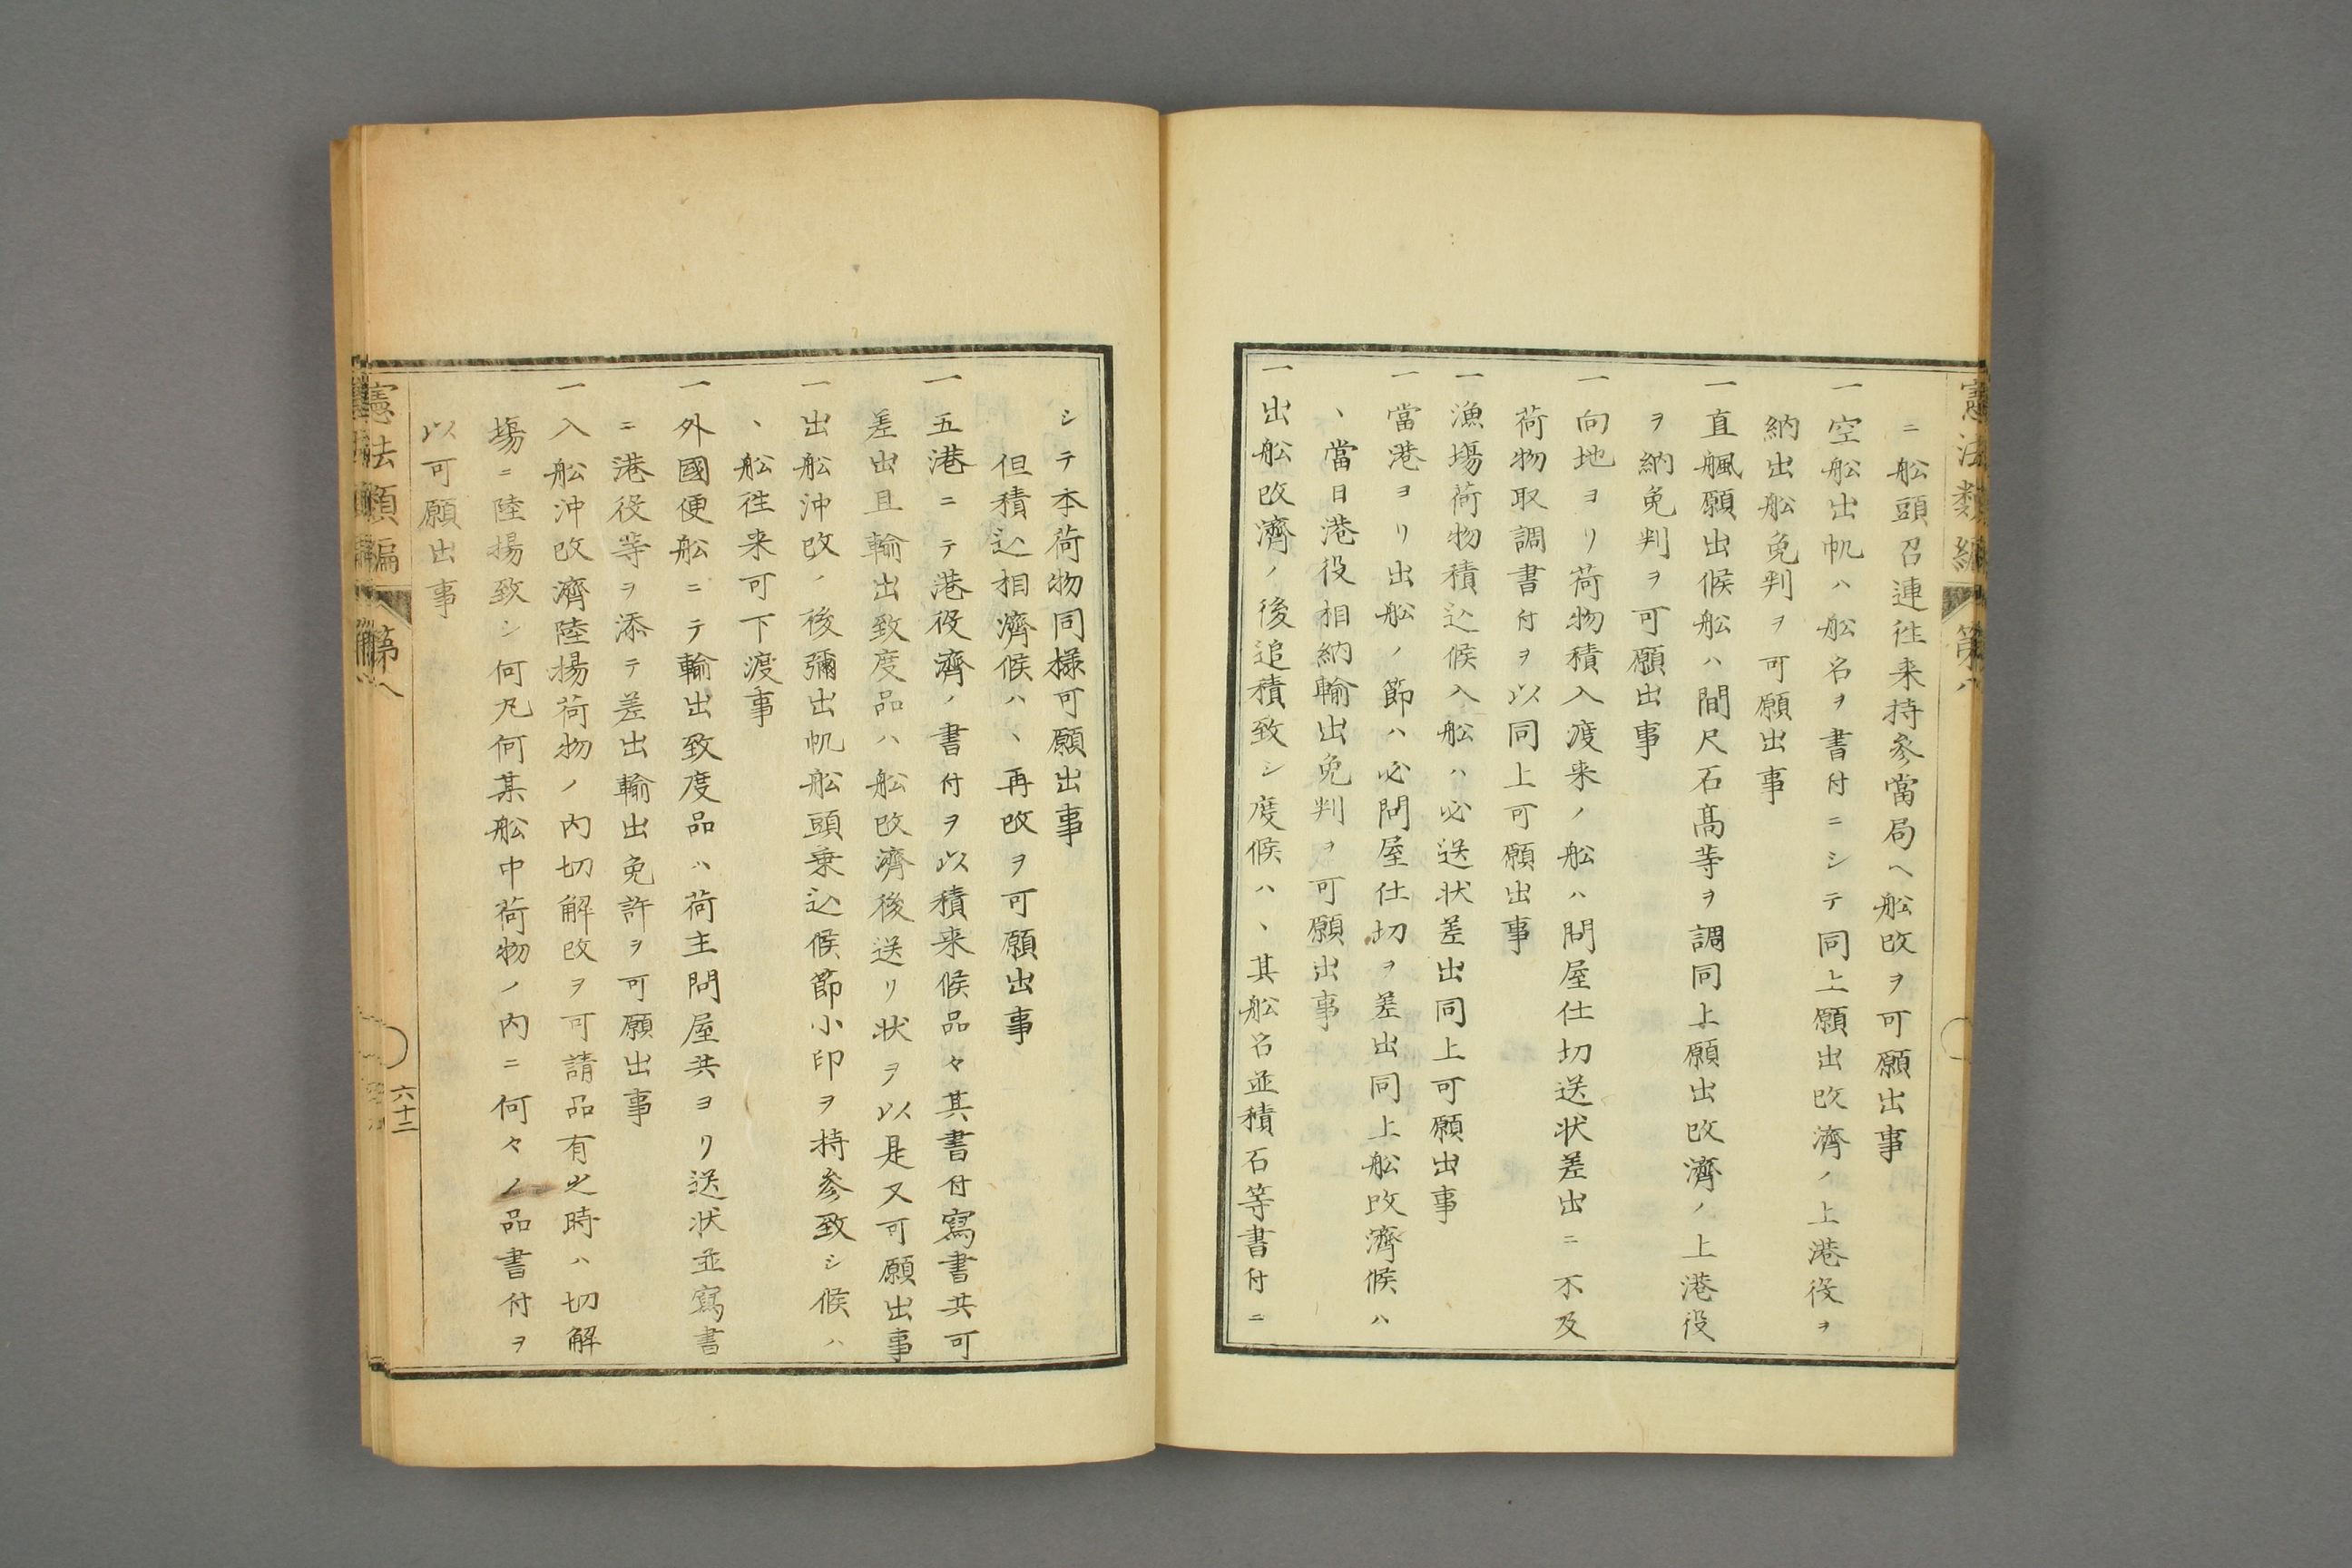 憲法類編 第八
ニ舩頭召連徃来持参當局ヘ舩改ヲ可願出事
一空舩出帆ハ舩名ヲ書付ニシテ同上願出改濟ノ上港役ヲ
納出舩免判ヲ可願出事
一直颿願出候舩ハ間尺石髙等ヲ調同上願出改濟ノ上港役
ヲ納免判ヲ可願出事
一向地ヨリ荷物積入渡来ノ舩ハ問屋仕切送状差出ニ不及
荷物取調書付ヲ以同上可願出事
一漁場荷物積込候入舩ハ必送状差出同上可願出事
一當港ヨリ出舩ノ節ハ必問屋仕切ヲ差出同上舩改濟候ハ
、當日港役相納輸出免判ヲ可願出事
一出舩改濟ノ後追積致シ度候ハ、其舩名並積石等書付ニ
シテ本荷物同様可願出事
但積込相濟候ハ、再改ヲ可願出事
一五港ニテ港役濟ノ書付ヲ以積来候品々其書付寫書共可
差出且輸出致度品ハ舩改濟後送リ状ヲ以是又可願出事
一出舩沖改ノ後彌出帆舩頭乗込候節小印ヲ持参致シ候ハ
、舩徃来可下渡事
一外國便舩ニテ輸出致度品ハ荷主問屋共ヨリ送状並寫書
ニ港役等ヲ添テ差出輸出免許ヲ可願出事
一入舩沖改濟陸揚荷物ノ内切解改ヲ可請品有之時ハ切解
場ニ陸揚致シ何凡何某舩中荷物ノ内ニ何々ノ品書付ヲ
以可願出事
憲法類編 第八
六十二